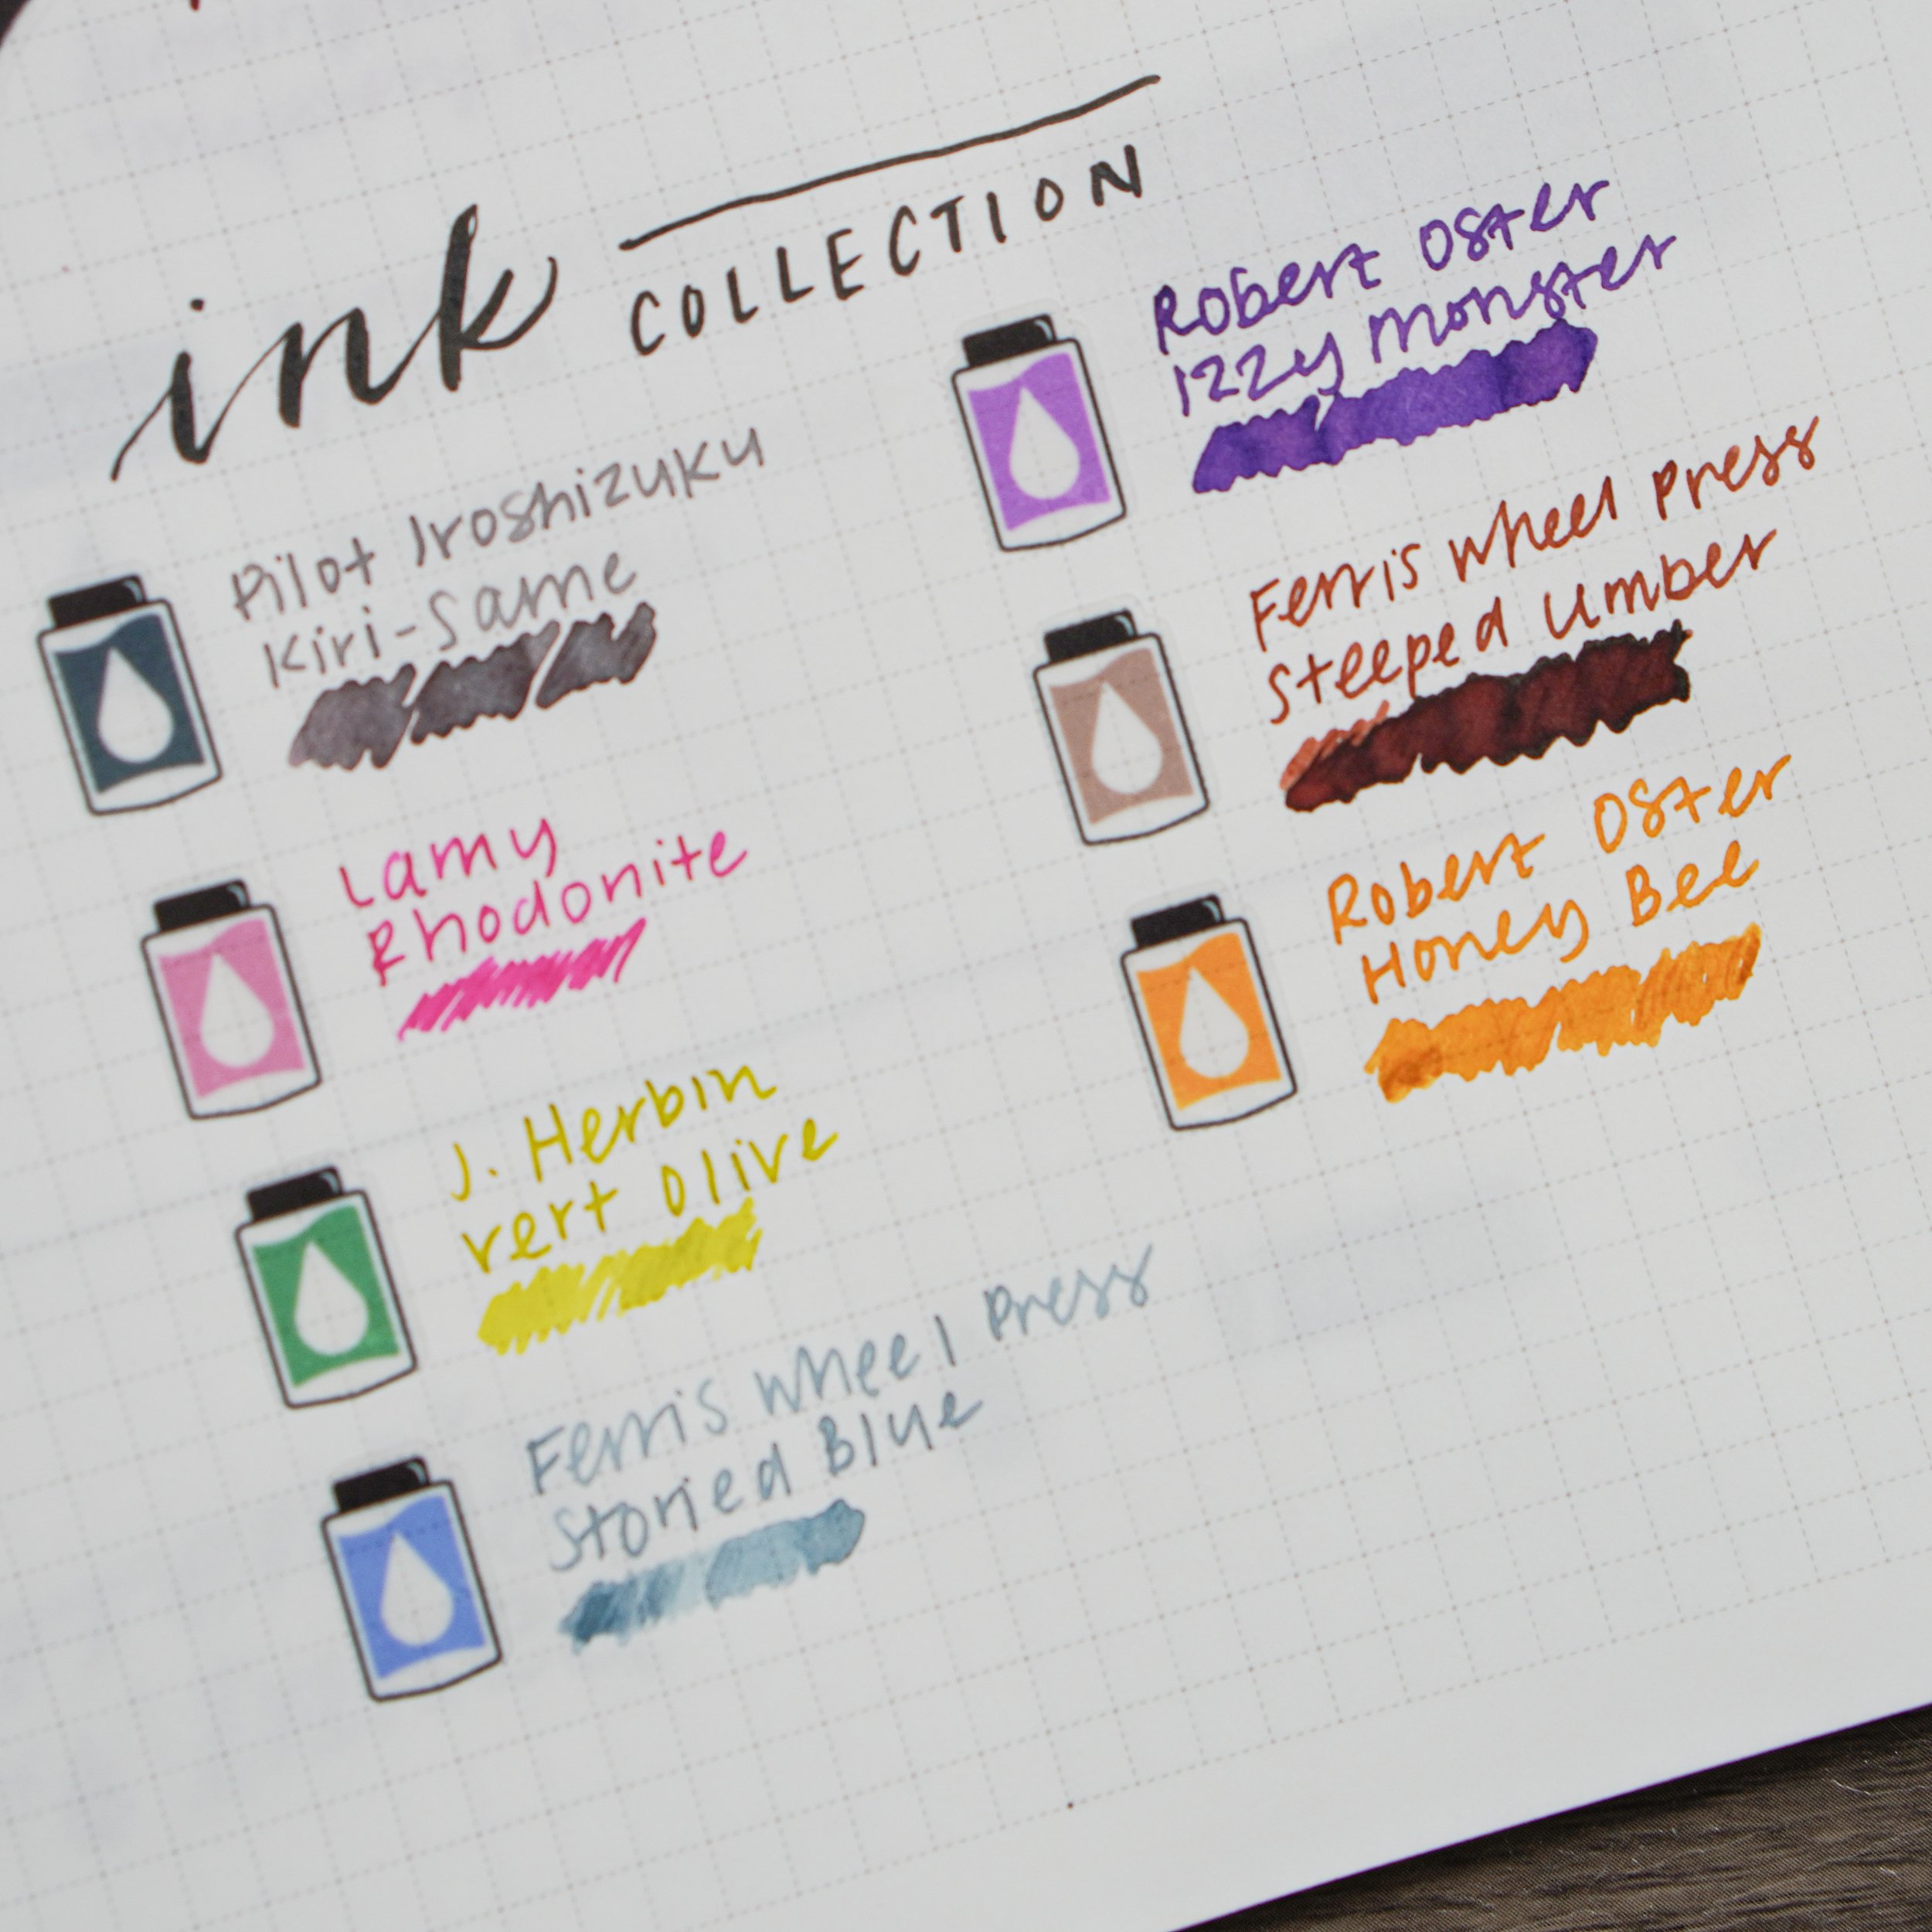 ink COLLECTION
Pilot Iroshizuku
Kiri-Same
Lamy
Rhodonite
J. Herbin
vert Olive
Ferris Wheel Press
Storied Blue
Robert Oster
Izzy Monster
Ferris Wheel Press
Steeped Umber
Robert Oster
Honey Bee